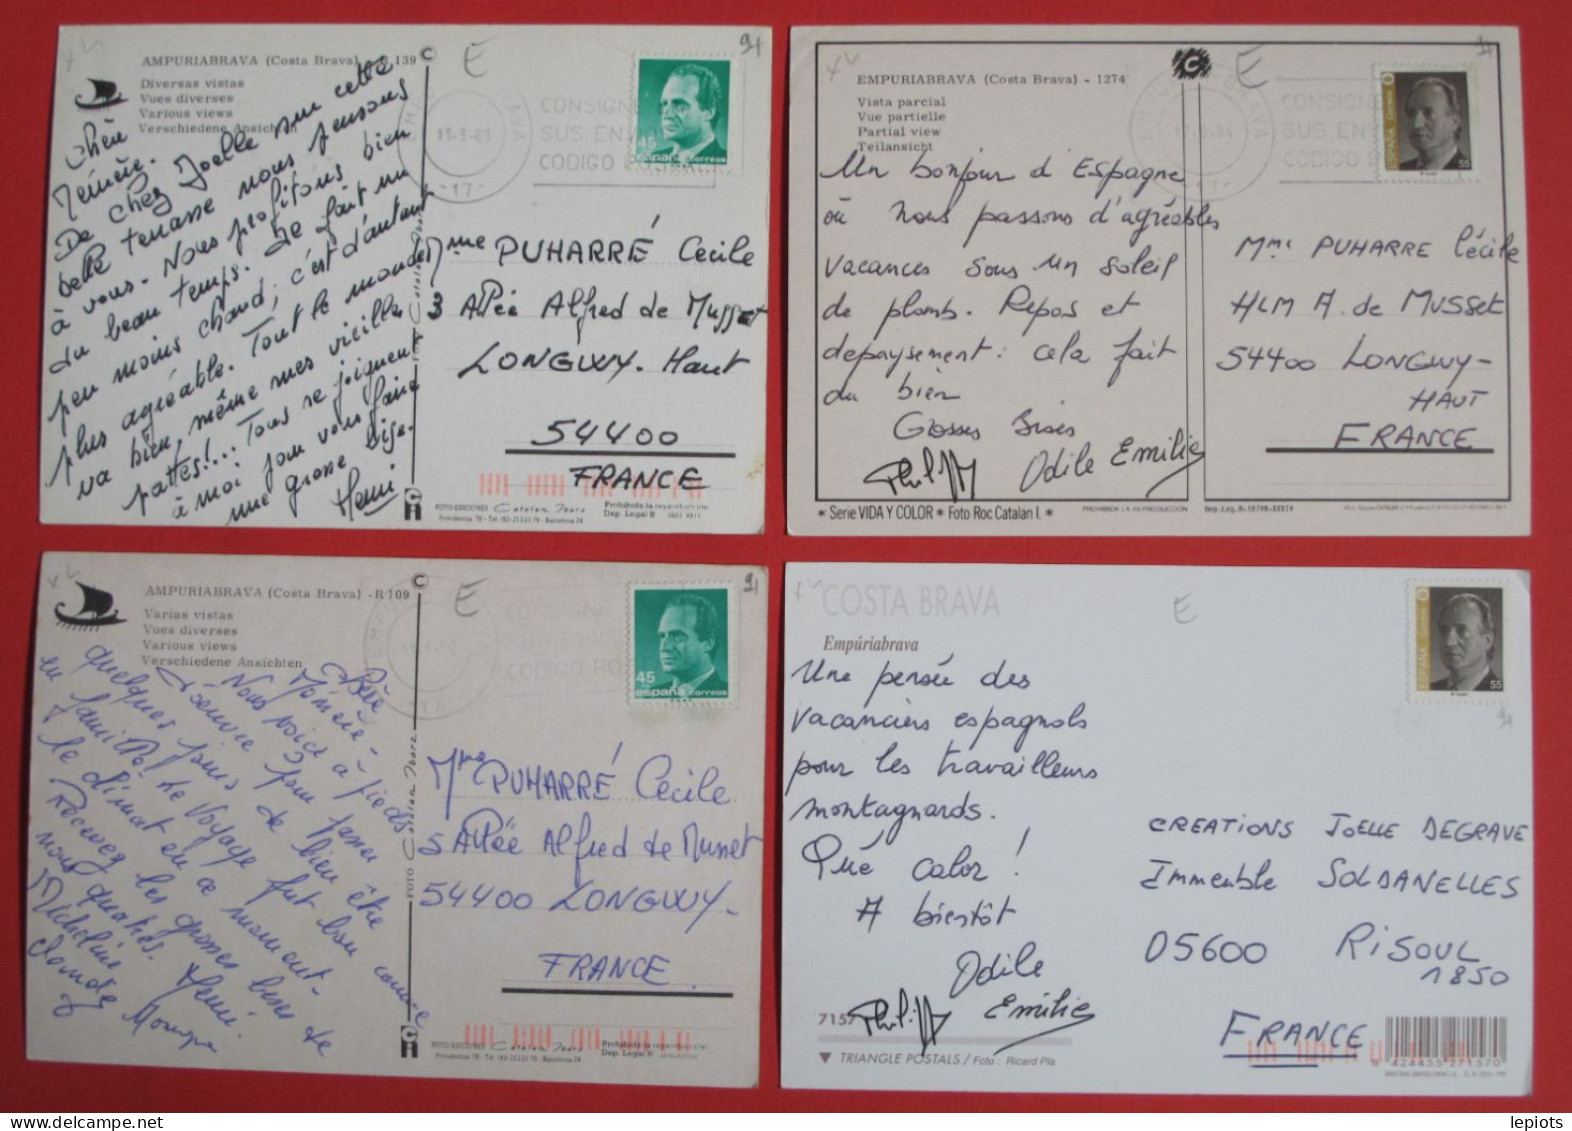 AMPURIABRAVA (Costa Brava) - R.139
Diversas vistas
Vues diverses
Various views
Verschiedene Ansichten
Chère
Mémère.
De chez Joelle sur cette
belle terrasse nous pensons
à vous. Nous profitons bien
du beau temps. Il fait un
peu moins chaud, c'est d'autant
plus agréable. Tout le monde
va bien, même mes vieilles
pattes!... Tous se joignent
à moi pour vous faire
une grosse bise.
Mme PUHARRÉ Cécile
3 Allée Alfred de Musset
LONGWY-Haut
54400
FRANCE
CONSIGNE
SUS ENVIO
CODIGO
17
45
españa correos
E
91
FOTO EDICIONES Catalan Ibarz
Prohibida la reproducción
Dep. Legal B
EMPURIABRAVA (Costa Brava) - 1274
Vista parcial
Vue partielle
Partial view
Teilansicht
Un bonjour d'Espagne
où nous passons d'agréables
vacances sous un soleil
de plomb. Repos et
depaysement: cela fait
du bien
Grosses bises
Philipp Odile Emilie
Mme PUHARRE Cécile
HLM A. de MUSSET
54400 LONGWY-
HAUT
FRANCE
CONSIGNE
SUS ENVIO
CODIGO
ESPAÑA Correos
55
E
* Serie VIDA Y COLOR * Foto Roc Catalan I. *
PROHIBIDA LA REPRODUCCIÓN
AMPURIABRAVA (Costa Brava) - R 109
Varias vistas
Vues diverses
Various views
Verschiedene Ansichten
Chère
Mémère-
Nous voici à pied
d'œuvre pour passer
quelques jours de bien être
en famille. Le voyage fut bon comme
le climat en ce moment.
Recevez les grosses bises de
nous quatre.
Micheline
Claude
Mme PUHARRÉ Cécile
5 Allée Alfred de Musset
54400 LONGWY-
FRANCE
45
españa correos
E
91
FOTO Catalan Ibarz
FOTO EDICIONES Catalan Ibarz
Prohibida la reproducción
Dep. Legal B
COSTA BRAVA
Empúriabrava
Une pensée des
vacanciers espagnols
pour les travailleurs
montagnards.
Qué calor !
A bientôt
Odile
Philipp Emilie
CREATIONS JOELLE DEGRAVE
Immeuble SOLDANELLES
05600 RISOUL
1850
FRANCE
ESPAÑA Correos
55
E
7157
▼ TRIANGLE POSTALS / Foto: Ricard Pla
8 424455 271570
lepiots // delcampe.net